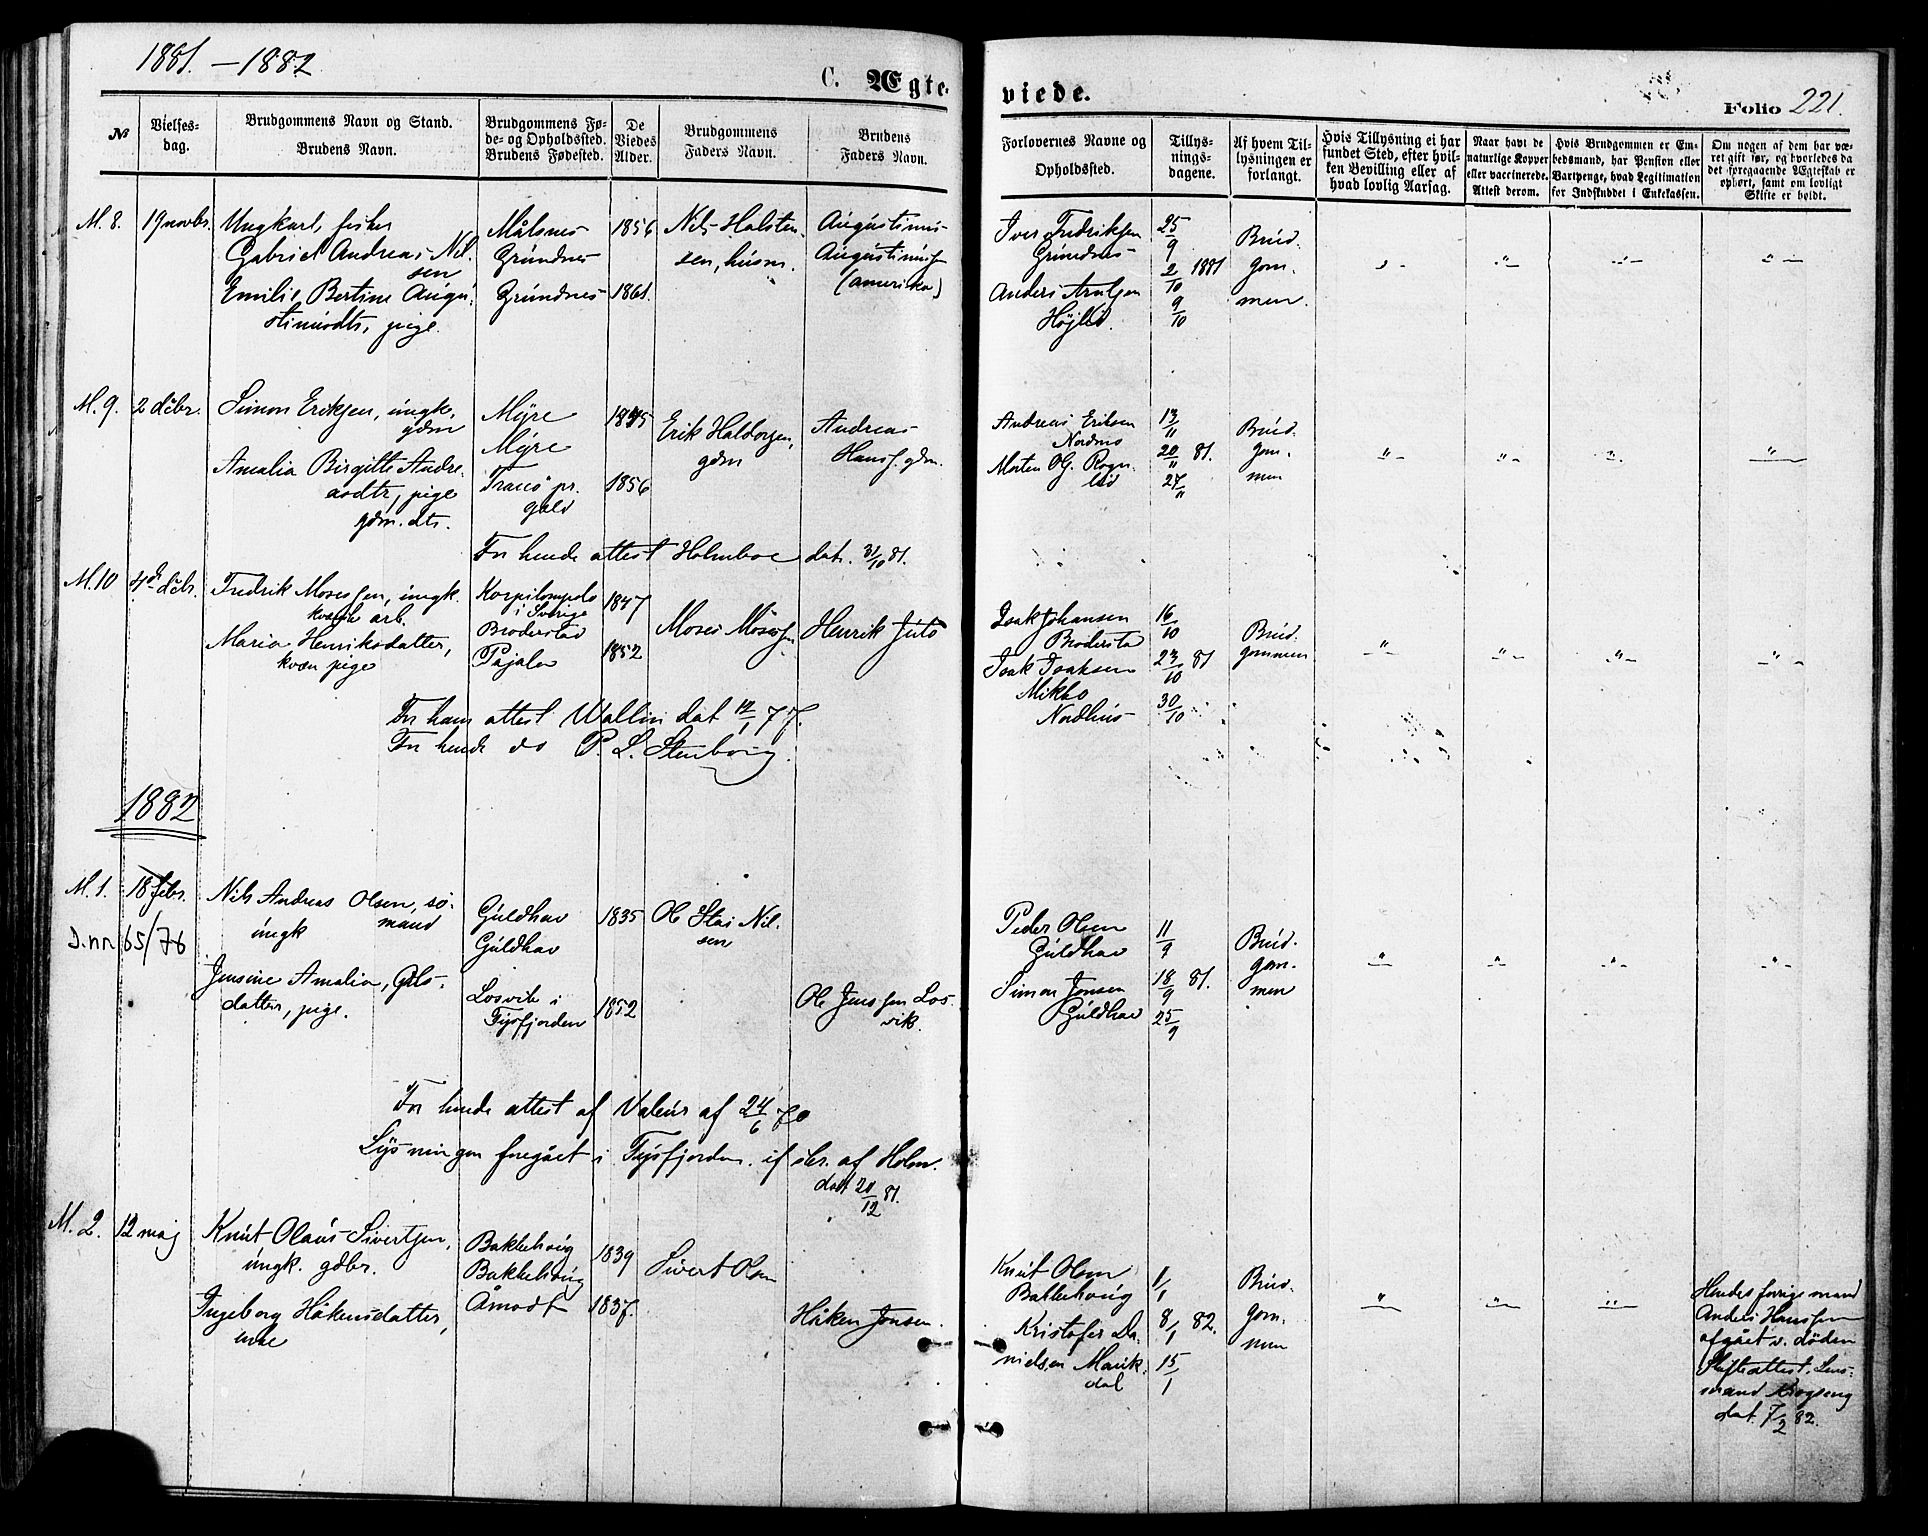 1881. – 1882
C. Ægte-
viede.
Folio 221.
№
Vielses-
dag.
Brudgommens Navn og Stand.
Brudens Navn.
Brudgommens Fø-
de- og Opholdssted.
Brudens Fødested.
De
Viedes
Alder.
Brudgommens
Faders Navn.
Brudens
Faders Navn.
Forlovernes Navne og
Opholdssted.
Tillys-
nings-
dagene.
Af hvem Til-
lysningen er
forlangt.
Hvis Tillysning ei har
fundet Sted, efter hvil-
ken Bevilling eller af
hvad lovlig Aarsag.
Naar havt de
naturlige Kopper
eller vaccinerede.
Attest derom.
Hvis Brudgommen er Em-
bedsmand, har Pension eller
Vartpenge, hvad Legitimation
for Indskuddet i Enkekassen.
Om nogen af dem har væ-
ret gift før, og hvorledes da
det foregaaende Ægteskab er
ophørt, samt om lovligt
Skifte er holdt.
M. 8.
19 novbr.
Ungkarl, fisker
Gabriel Andreas Nil-
sen
Emilie Bertine Augu-
stinusdtr, pige.
Målsnes
Grundnes
Grundnes
1856
1861.
Nils Halsten-
sen, husm.
Augustinus
Augustinusf
(amerika)
Iver Fredriksen
Grundnes
Anders Arntsen
25/9
2/10 1881
9/10
Brud-
gom-
men.
M. 9.
2 decbr.
Simon Eriksen, ungk.
gdm
Amalia Birgitte Andre-
asdtr, pige
gdm. dtr.
Myre
Myre
Tranø pr.
gjeld
1856
Erik Haldorsen,
gdm
Andreas
Hansf. gdm.
Andreas Eriksen
Nordmo
Morten
13/11
20/11 81.
27/11
Brud-
gom-
men
For hende attest Holmboe dat. 31/10 81.
M. 10
4de decbr.
Fredrik Mosessen, ungk.
kvensk arb.
Maria Henriksdatter,
kvæn pige
Korpilompolo
i Sverige
Broderstad
Pajala
1847
1852
Moses Mosessen
Henrik Juto
Isak Johansen
Brodersta
Isak Isaksen
Mikko
Nordhus
16/10
23/10 81
30/10
Brud-
gommen
For ham attest Wallin dat 12/1 77.
For hende do P. L. Stenborg.
1882
M. 1.
18 febr.
J.nr. 65/76
Nils Andreas Olsen, sø-
mand
ungk
Jensine Amalia, Ols-
datter, pige.
Guldhav
Guldhav
Losvik i
Tysfjorden
1835
1852
Ole Nil-
sen
Ole Jenssen Los-
vik.
Peder Olsen
Guldhav
Simon Jensen
Guldhav
11/9
18/9 81.
25/9
Brud-
gom-
men
For hende attest af Valeur af 24/6 70
Lysningen foregået i Tysfjorden. if skr. af Holm.
dat 20/12 81.
M. 2.
12 maj
Knut Olaus Sivertsen,
ungk. gdbr.
Ingeborg Håkensdatter,
enke
Bakkehaug
Bakkehaug
Åmodt
1839
1837.
Sivert Olsen
Håken Jonsen.
Knut Olsen
Bakkehaug
Kristofer Da-
nielsen Mauk-
dal
1/1
8/1 82.
15/1
Brud-
gom-
men
Hendes forrige mand
Anders Hanssen
afgået v. døden
Skifteattest. Lens-
mand Krogseng
dat. 7/2 82.